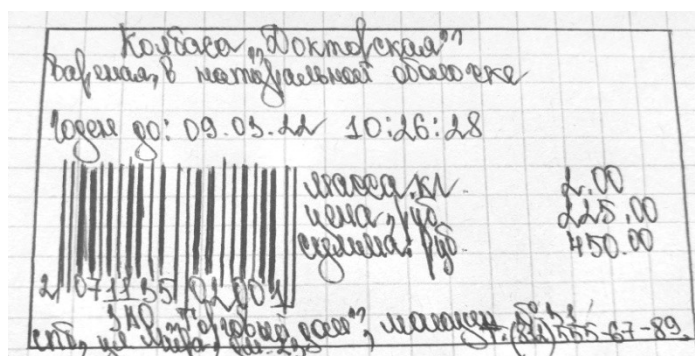 Колбаса „Докторская”
вареная, в натуральной оболочке
Годен до: 09.03.22 10:26:28
масса, кг. 2.00
цена, руб. 225.00
сумма: руб. 450.00
2 071155 02001
ЗАО "Торговый дом", магазин №51
спб, ул Мира, т.(812)555-67-89